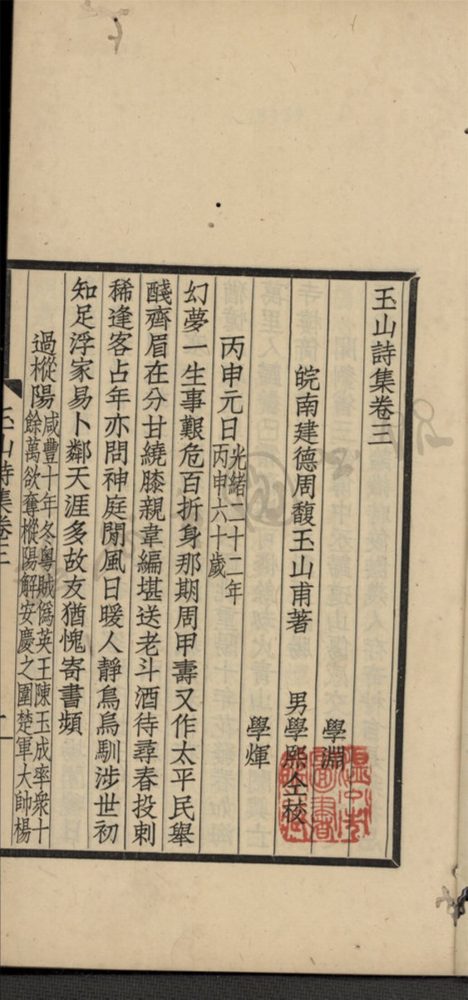 玉山詩集卷三
皖南建德周馥玉山甫著
學淵
男學熙仝校
學煇
丙申元日
光緒二十二年
丙申六十歲
幻夢一生事艱危百折身那期周甲壽又作太平民舉
醆齊眉在分甘繞膝親韋編堪送老斗酒待尋春投刺
稀逢客占年亦問神庭閒風日暖人靜鳥烏馴涉世初
知足浮家易卜鄰天涯多故友猶愧寄書頻
過樅陽
咸豐十年冬粵賊僞英王陳玉成率衆十
餘萬欲奪樅陽解安慶之圍楚軍大帥楊
玉山詩集卷三